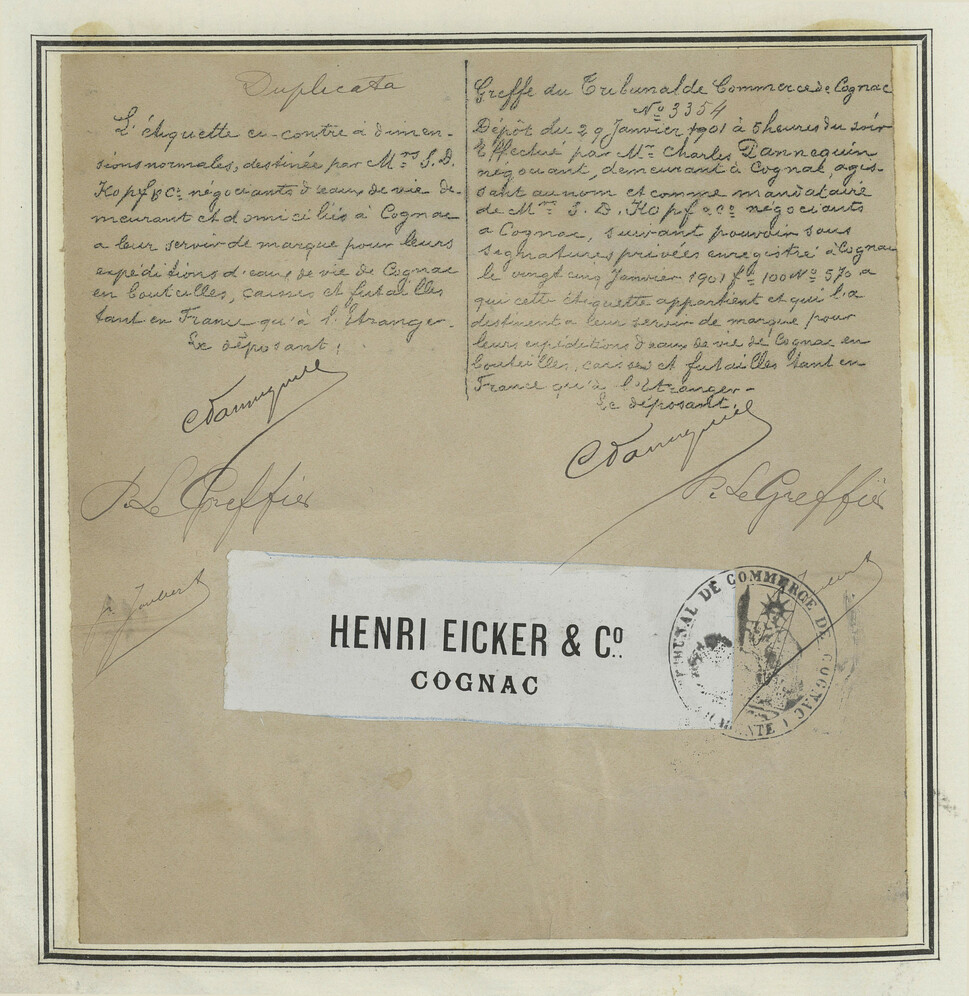 Duplicata
L'étiquette ci-contre à dimen-
sions normales, destinée par Mrs J. D.
Kopf & Co négociants d'eaux de vie de-
meurant et domiciliés à Cognac
a leur servir de marque pour leurs
expéditions d'eaux de vie de Cognac
en bouteilles, caisses et futailles
tant en France qu'à l'Etranger.
Le déposant,
CDannequin
P. Le Greffier
Greffe du Tribunal de Commerce de Cognac
No 3354
Dépôt du 29 Janvier 1901 à 5 heures du soir
Effectué par Mr Charles Dannequin
négociant, demeurant à Cognac, agis-
sant au nom et comme mandataire
de Mrs J. D. Kopf & Co négociants
a Cognac, suivant pouvoir sous
signatures privées enregistré à Cognac
le vingt cinq Janvier 1901 fo 100 No 570 a
qui cette étiquette appartient et qui l'a
destinent a leur servir de marque pour
leurs expéditions d'eaux de vie de Cognac en
bouteilles, caisses et futailles tant en
France qu'à l'Etranger-
Le déposant,
CDannequin
P. Le Greffier
HENRI EICKER & Co.
COGNAC
TRIBUNAL DE COMMERCE DE COGNAC